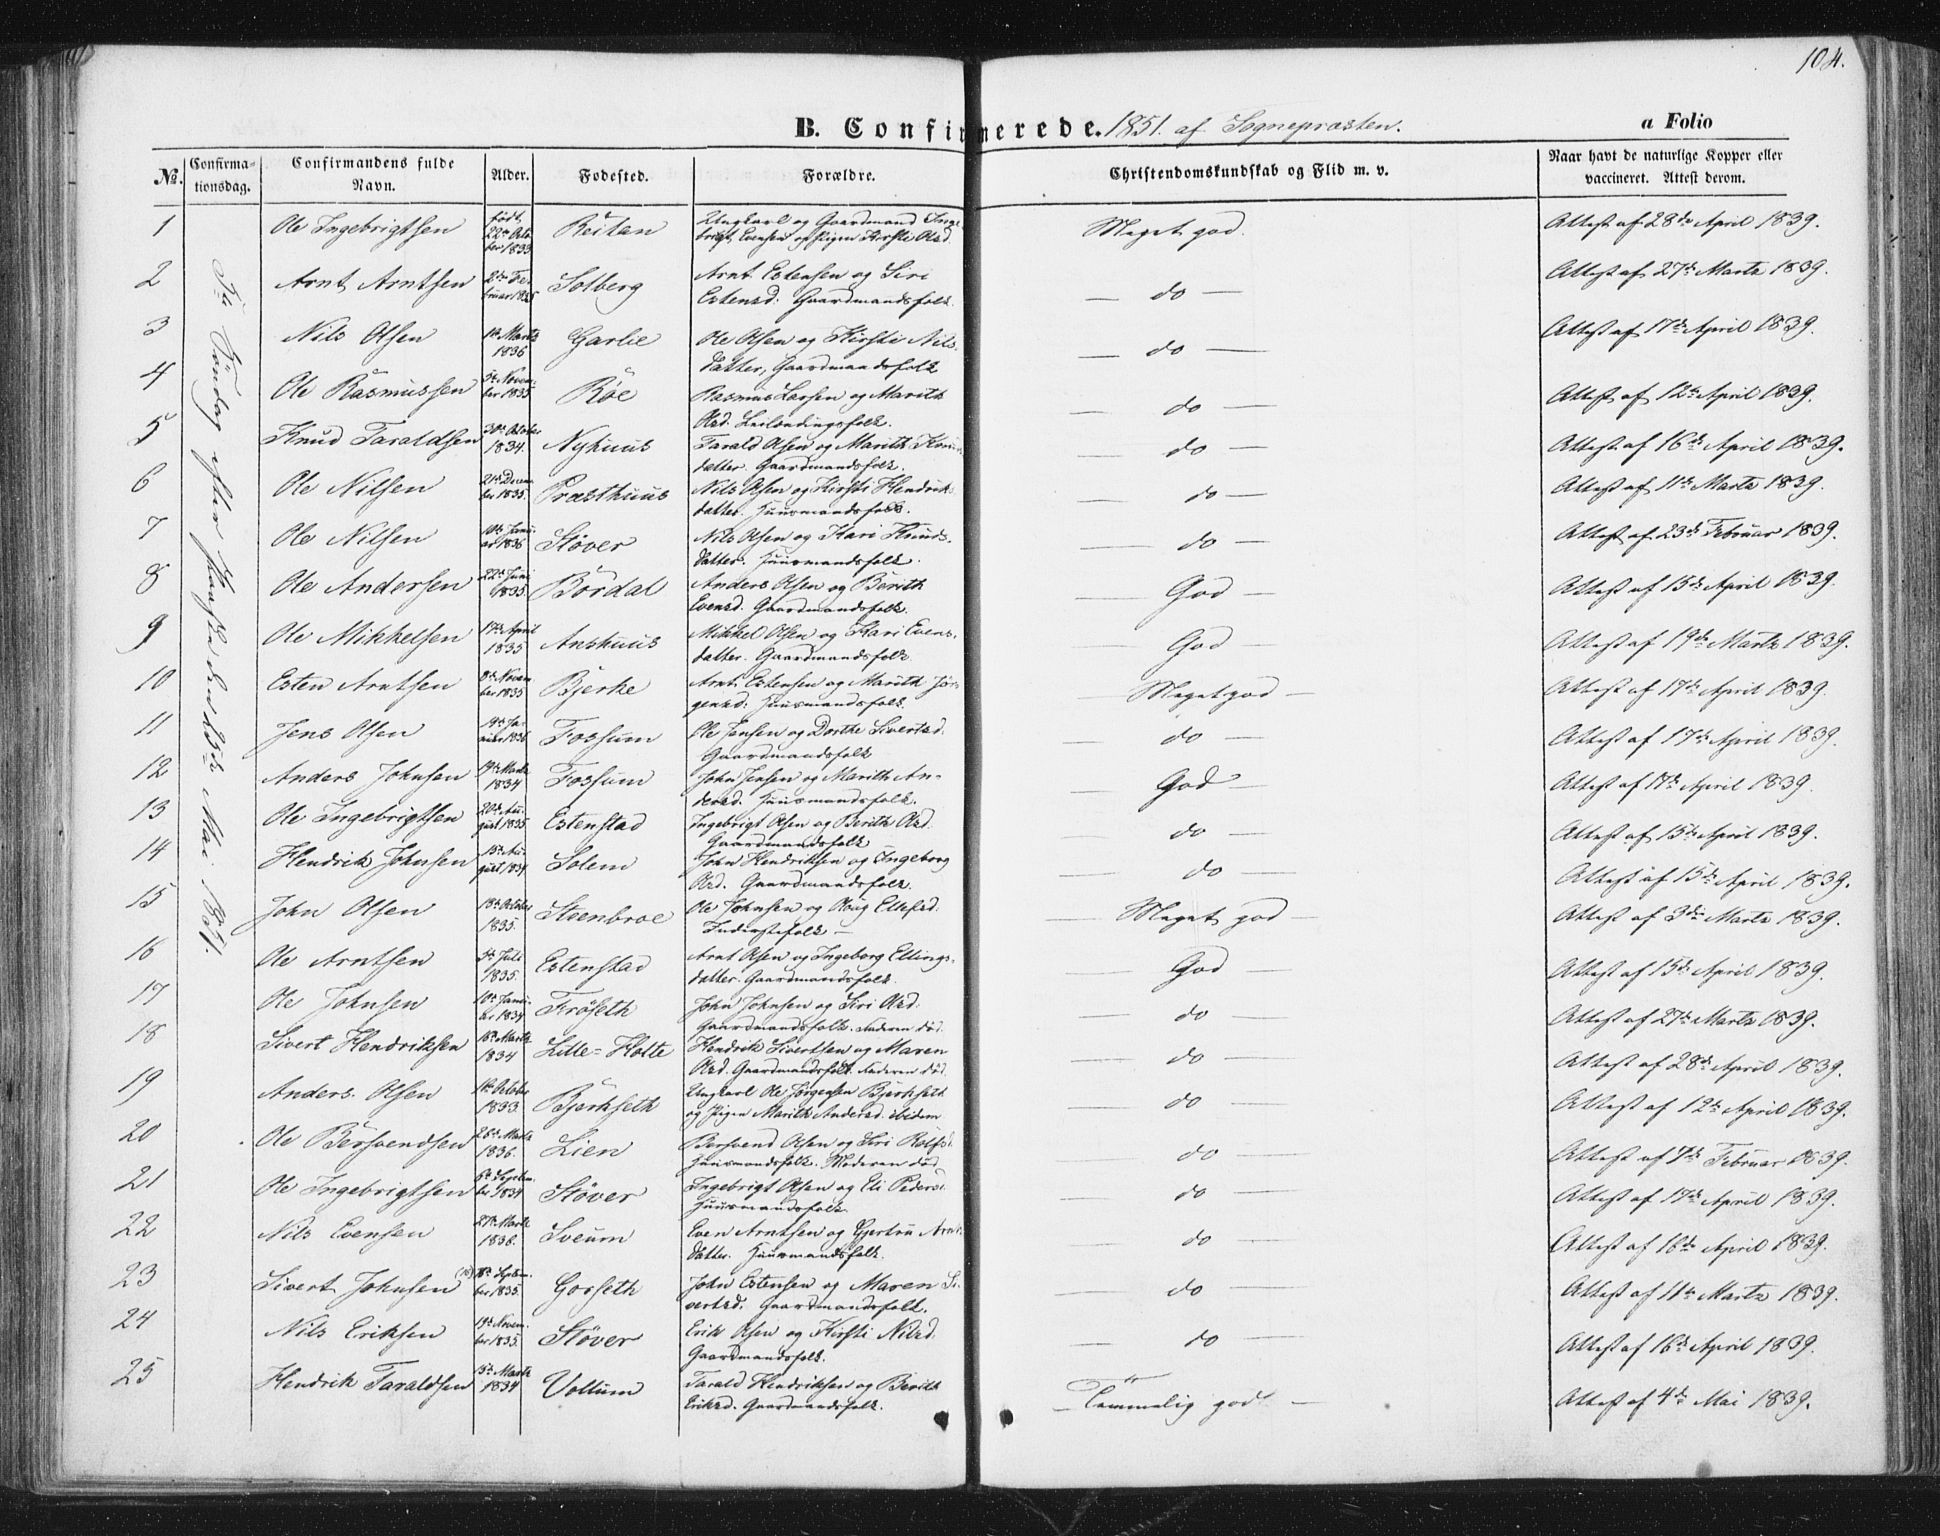 104.
B. Confirmerede. 1851. af Sognepræsten.
a Folio
No. Confirmationsdag. Confirmandens fulde Navn. Alder. Fødested. Forældre. Christendomskundskab og Flid m. v. Naar havt de naturlige Kopper eller vaccineret. Attest derom.
Søndag efter Mai 1851.
1 Ole Ingebrigtsen født 22de Octo- Reitan Ungkarl og Gaardmand Inge- Meget god. Attest af 28de April 1839.
ber 1833 brigt Evensen og Pigen Kirsti Olsd.
2 Arnt Arntsen 2den Fe- Solberg Arnt Estensen og Siri — do — Attest af 27de Martz 1839.
bruar Estensd: Gaardmandsfolk.
3 Nils Olsen 1ste Martz Garlie Ole Olsen og Kirsti Nils- — do — Attest af 17de April 1839.
1836 datter, Gaardmandsfolk
4 Ole Rasmussen 5te Novem- Røe Rasmus Larsen og Marith — do — Attest af 12te April 1839.
ber 1835 Olsd. Leilændingsfolk.
5 Knud Taraldsen 30te October Nyhuus Tarald Olsen og Marith Knuds- — do — Attest af 16de April 1839.
1834. datter. Gaardmandsfolk.
6 Ole Nilsen 21de Decem- Præsthuus Nils Olsen og Kirsti Hendriks- — do — Attest af 11te Martz 1839.
ber 1835. datter. Huusmandsfolk.
7 Ole Nilsen 10de Janu- Støver Nils Olsen og Kari Knuds- — do — Attest af 23de Februar 1839.
ar 1836 datter. Huusmandsfolk.
8 Ole Andersen 22de Juni Bördal Anders Olsen og Berith — God — Attest af 15de April 1839.
1835. Evensd. Gaardmandsfolk.
9 Ole Mikkelsen 17de April Anshuus Mikkel Olsen og Kari Evens- — God — Attest af 19de Martz 1839.
1835 datter. Gaardmandsfolk
10 Esten Arntsen 8de Novem- Bjerke Arnt Estensen og Marith Jør- — Meget god — Attest af 17de April 1839.
ber 1835 gensd: Huusmandsfolk.
11 Jens Olsen 19de Ja- Fossum Ole Jensen og Dorthe Sivertsd. — do — Attest af 17de April 1839.
nuar 1836 Gaardmandsfolk
12 Anders Johnsen 19de Martz Fossum John Jensen og Marith An- — God — Attest af 17de April 1839.
1834 dersd. Huusmandsfolk.
13 Ole Ingebrigtsen 20de Au- Estenstad Ingebrigt Olsen og Berith Olsd. — do — Attest af 15de April 1839.
gust 1835 Gaardmandsfolk
14 Hendrik Johnsen 15de Au- Solem John Hendriksen og Ingeborg — do — Attest af 15de April 1839.
gust 1834 Olsd. Gaardmandsfolk.
15 John Olsen 18de October Steenbroe Ole Johnsen og Elletsd. — Meget god — Attest af 3die Martz 1839.
1835. Inderstefolk —
16 Ole Arntsen 5te Juli Estenstad Arnt Olsen og Ingeborg Ellings- — God — Attest af 15de April 1839.
1835. datter. Gaardmandsfolk.
17 Ole Johnsen 10de Janu- Frøseth John Johnsen og Siri Olsd: — do — Attest af 27de Martz 1839.
ar 1834 Gaardmandsfolk. Faderen død.
18 Sivert Hendriksen 16de Martz Lille-Kolte Hendrik Sivertsen og Maren — do — Attest af 28de April 1839.
1834 Olsd. Gaardmandsfolk. Faderen død.
19 Anders Olsen October Bjerkseth Ungkarl Ole Jørgensen Bjerkseth — do — Attest af 12te April 1839.
1833. og Pigen Marith Andersd. ibidem
20 Ole Bersvendsen 28de Martz Lien Bersvend Olsen og Siri Rolfsd. — do — Attest af 7de Februar 1839.
1836. Huusmandsfolk. Moderen død
21 Ole Ingebrigtsen 6te Septem- Støver Ingebrigt Olsen og Eli Pedersd. — do — Attest af 17de April 1839.
ber 1834 Huusmandsfolk.
22 Nils Evensen 27de Martz Sveum Even Arntsen og Gjertru Arnts- — do — Attest af 16de April 1839.
1836. datter. Huusmandsfolk.
23 Sivert Johnsen 18de Septem- Gorseth John Estensen og Maren Si- — do — Attest af 11te Martz 1839.
ber 1835. vertsd. Gaardmandsfolk.
24 Nils Eriksen 19de Novem- Støver Erik Olsen og Kirsti Nilsd. — do — Attest af 16de April 1839.
ber 1835. Gaardmandsfolk.
25 Hendrik Taraldsen 15de Martz Vollum Tarald Hendriksen og Berith — Temmelig god — Attest af 4de Mai 1839.
1834 Eriksd. Gaardmandsfolk.